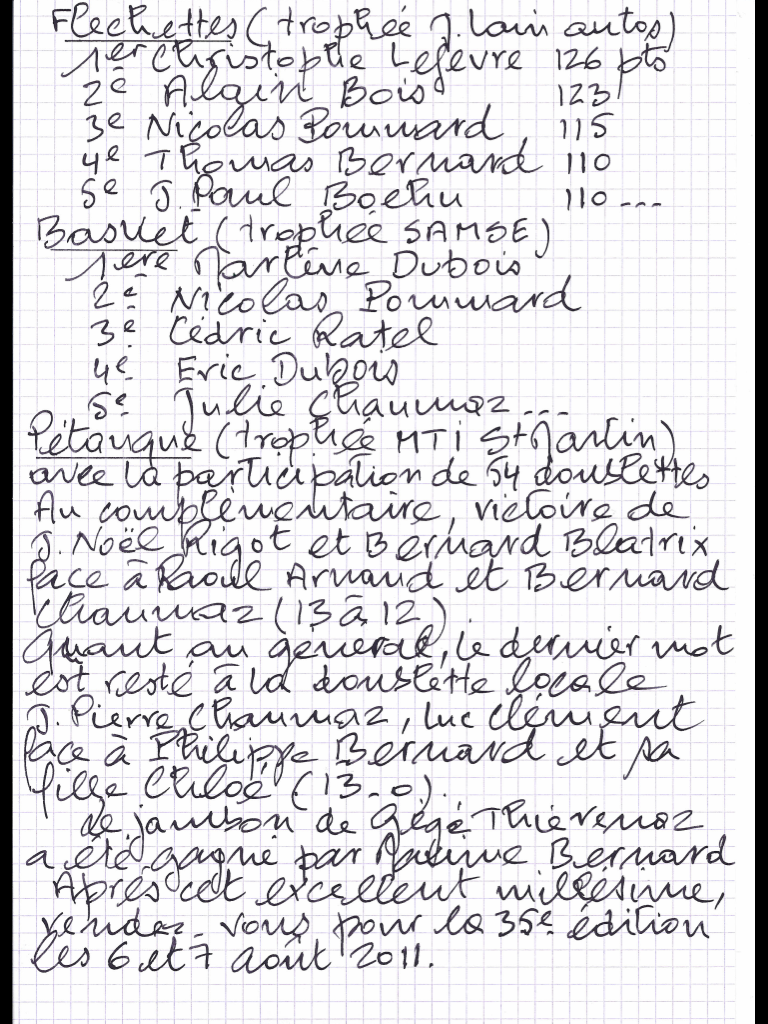 Flechettes (trophée J. Lain autos)
1er Christophe Lefèvre 126 pts
2e Alain Bois 123
3e Nicolas Pommard 115
4e Thomas Bernard 110
5e J. Paul Boehu 110 ...
Basket (trophée SAMSE)
1ère Martine Dubois
2e Nicolas Pommard
3e Cédric Ratel
4e Eric Dubois
5e Julie Chaumaz ...
Pétanque (trophée MTI St Martin)
avec la participation de 54 doublettes
Au complémentaire, victoire de
J. Noël Rigot et Bernard Blatrix
face à Raoul Arnaud et Bernard
Chaumaz (13 à 12).
Quant au général, le dernier mot
est resté à la doublette locale
J. Pierre Chaumaz, Luc Clément
face à Philippe Bernard et sa
fille Chloé (13-0).
Le jambon de Gégé Thievenaz
a été gagné par Maxime Bernard
Après cet excellent millésime,
rendez-vous pour la 35e édition
les 6 et 7 août 2011.